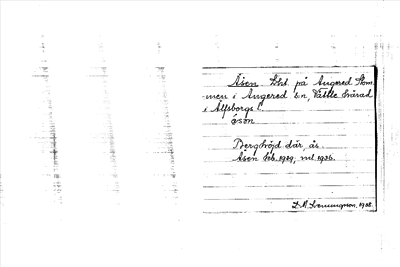 Åsen. Lht. på Angered Stom-
men i Angered sn, Vättle härad
i Älfsborgs l.
åsen
Berghöjd där, ås.
Åsen hb. 1929, ml 1936.
1938.